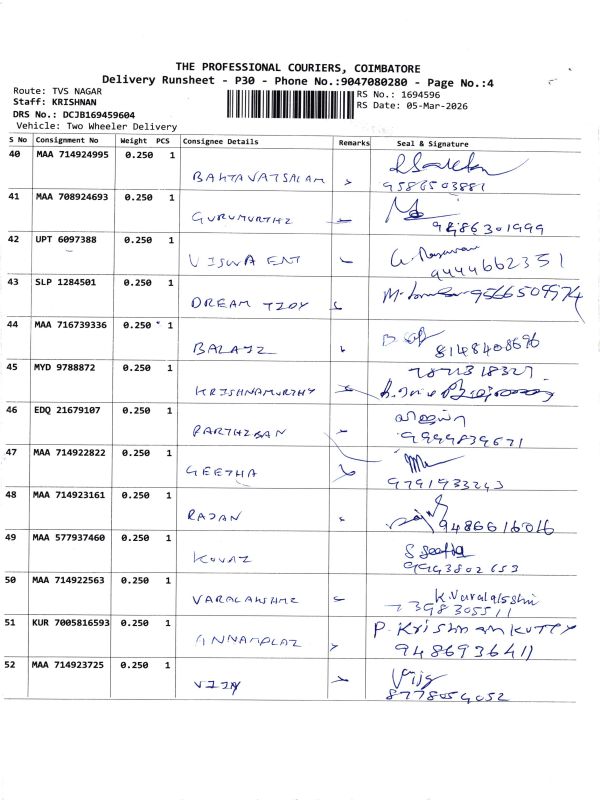 THE PROFESSIONAL COURIERS, COIMBATORE
Delivery Runsheet - P30 - Phone No.:9047080280 - Page No.:4
Route: TVS NAGAR
Staff: KRISHNAN
DRS No.: DCJB169459604
Vehicle: Two Wheeler Delivery
RS No.: 1694596
RS Date: 05-Mar-2026
S No Consignment No Weight PCS Consignee Details Remarks Seal & Signature
40 MAA 714924995 0.250 1
BAHTAVATSALAM 9586503881
41 MAA 708924693 0.250 1
GURUMURTHZ 9486301999
42 UPT 6097388 0.250 1
VISWA ENT 9444662351
43 SLP 1284501 0.250 1
DREAM TZDY 9566509974
44 MAA 716739336 0.250 1
BALAJZ 8148408696
45 MYD 9788872 0.250 1
KRISHNAMURTHY
46 EDQ 21679107 0.250 1
PARTHZBAN 9999839671
47 MAA 714922822 0.250 1
GEETHA 9791933243
48 MAA 714923161 0.250 1
RAJAN 9486616016
49 MAA 577937460 0.250 1
KOVAZ S Seetha
9993802653
50 MAA 714922563 0.250 1
VARALAKSHMZ K.Varalakshmi
7398305511
51 KUR 7005816593 0.250 1
ANNAMALAZ P. KriSHNANKUTTY
9486936411
52 MAA 714923725 0.250 1
VZJAY Vijy
8778054052